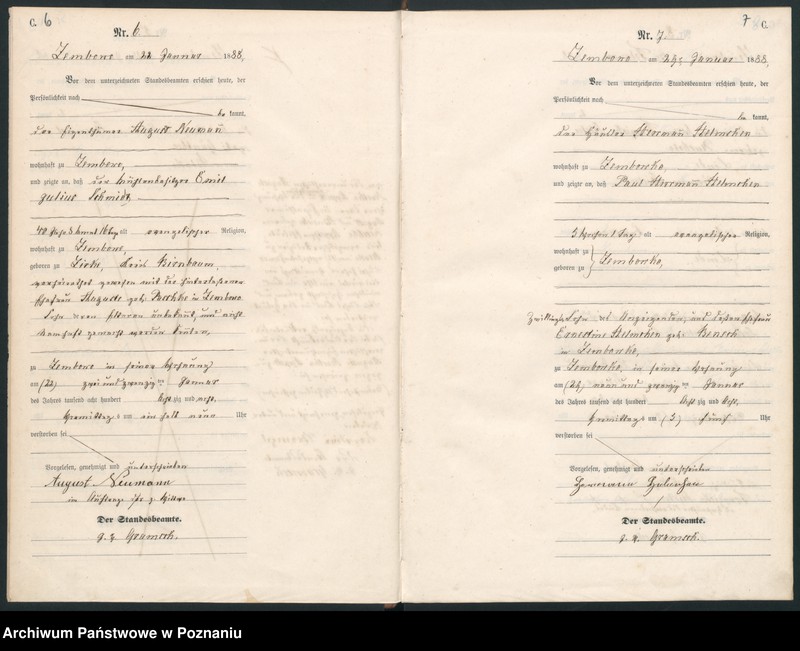 C. 6
Nr. 6
Zembowo am 22 Januar 1888,
Vor dem unterzeichneten Standesbeamten erschien heute, der
Persönlichkeit nach
be kannt,
der Eigenthümer August Neumann
wohnhaft zu Zembowo,
und zeigte an, daß der Mühlenbesitzer Emil
Julius Schmidt,
40 Jahr 5 Monat 16 Tag alt evangelischer Religion,
wohnhaft zu Zembowo,
geboren zu Zirke, Kreis Birnbaum,
verheirathet gewesen mit der hinterlassenen
Ehefrau Auguste geb. in Zembowo
Sohn von Eltern unbekannt, und nicht
namhaft gemacht werden können,
zu Zembowo in seiner Wohnung
am (22) zwei und zwanzig ten Januar
des Jahres tausend acht hundert Acht zig und acht,
Vormittags um ein halb neun Uhr
verstorben sei
Vorgelesen, genehmigt und unterschrieben
August Neumann
im Auftrage
Der Standesbeamte.
Gramsch.
7 C.
Nr. 7
Zembowo am 29 Januar 1888,
Vor dem unterzeichneten Standesbeamten erschien heute, der
Persönlichkeit nach
be kannt,
der Häusler Herrmann
wohnhaft zu Zembowko,
und zeigte an, daß Paul Herrmann
3 Wochen 1 Tag alt evangelischer Religion,
wohnhaft zu
geboren zu Zembowko,
Zwillings Sohn des Anzeigenden, und dessen Ehefrau
Ernestine geb.
in Zembowko,
zu Zembowko, in seiner Wohnung
am neun und zwanzig ten Januar
des Jahres tausend acht hundert Acht zig und Acht,
Vormittags um (5) fünf Uhr
verstorben sei
Vorgelesen, genehmigt und unterschrieben
Herrmann
Der Standesbeamte.
Gramsch.
Archiwum Państwowe w Poznaniu